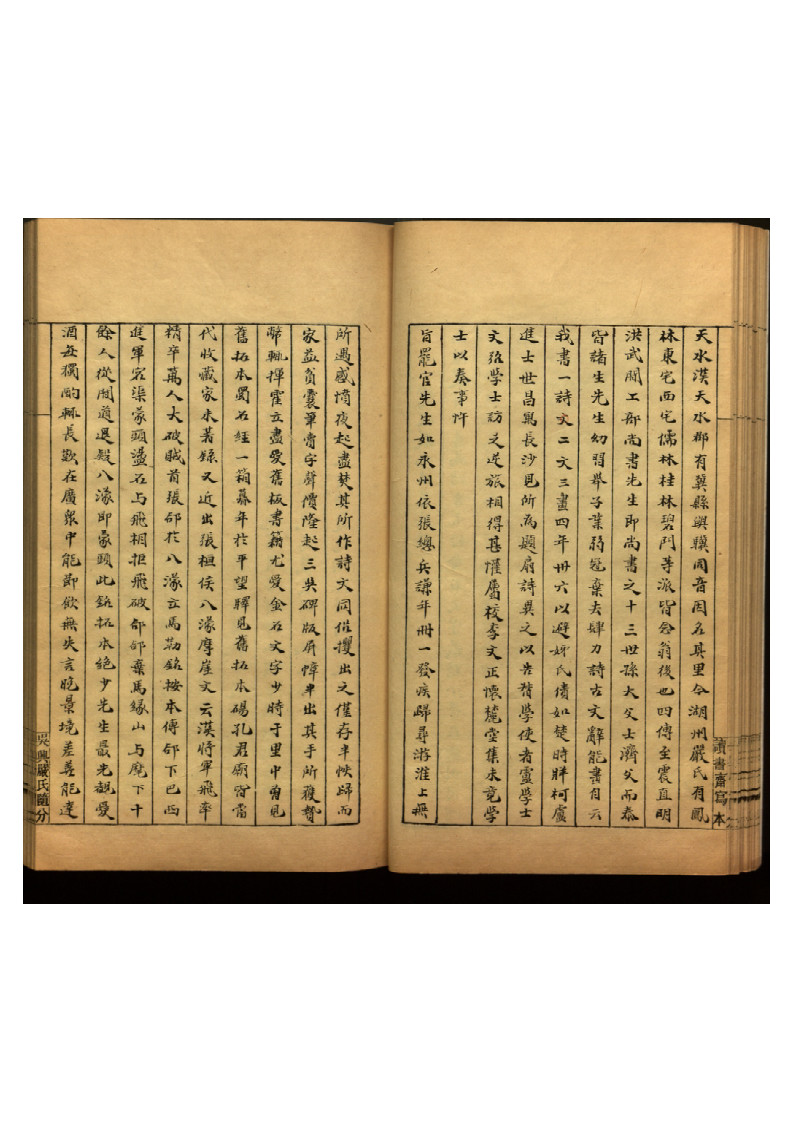 天水漢天水郡有冀縣與驥同音因名其里今湖州嚴氏有鳳
林東宅西宅儒林桂林碧門等派皆翁後也四傳至震直明
洪武間工部尚書先生即尚書之十三世孫大父士濟父而泰
皆諸生先生幼習舉子業弱冠棄去肆力詩古文辭能書自云
我書一詩文二文三畫四年卅六以避婦氏債如楚時牂柯盧
進士世昌為長沙邑所為題扇詩異之以告督學使者靈學士
文弨學士訪之逆旅相得甚懽屬校李文正懷麓堂集未竟學
士以奏事忤
旨罷官先生如永州依張總兵謙年卌一發疾歸尋游淮上無
所遇感憤夜起盡焚其所作詩文同伯攫出之僅存半怏歸而
家益貧橐筆賣字聲價隆起三吳碑版屏幛半出其手所獲贄
幣輒揮霍立盡愛舊板書籍尤愛金石文字少時于里中曾見
舊拓本蜀石經一箱暮年於平望驛見舊拓本碭孔君廟皆當
代收藏家未著錄又近出張桓侯八濛摩崖文云漢將軍飛率
精卒萬人大破賊首張郃於八濛立馬勒銘按本傳郃下巴西
進軍宕渠蒙頭盪石与飛相拒飛破郃郃棄馬緣山与麾下十
餘人從間道退疑八濛即蒙頭此銘拓本絕少先生最先覩愛
酒每獨酌輒長歎在廣眾中能節飲無失言晚景境差善能達
讀書齋寫本
吳興嚴氏隨分